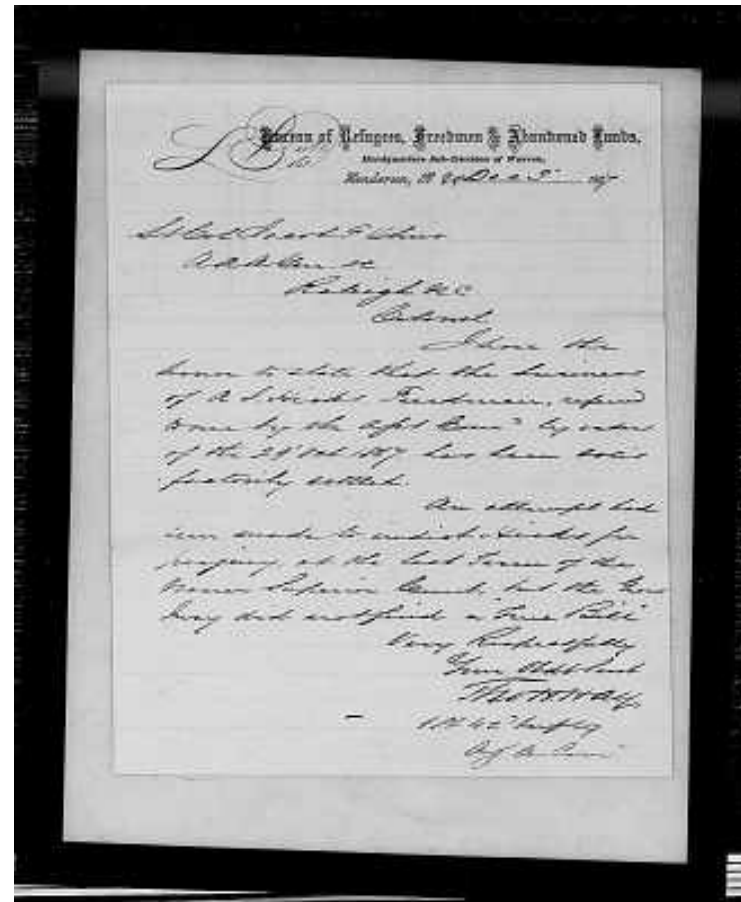 Bureau of Refugees, Freedmen & Abandoned Lands,
Headquarters Sub-Division of Warren,
Henderson, N. C., Dec 1867
Lt Col Jacob F Chur
A A A Gen &c
Raleigh N C
Colonel
I have the
honor to state that the business
of Hicks Freedman, refered
to me by the Asst Com by
of the 29" 1867 has been satis
factorily settled.
An attempt had
been made to indict Hicks for
perjury at the last Term of the
Warren Superior Court, but the Gran
Jury did not find a "True Bill"
Very Respectfully
Your Obdt Servt
Thos H Hay